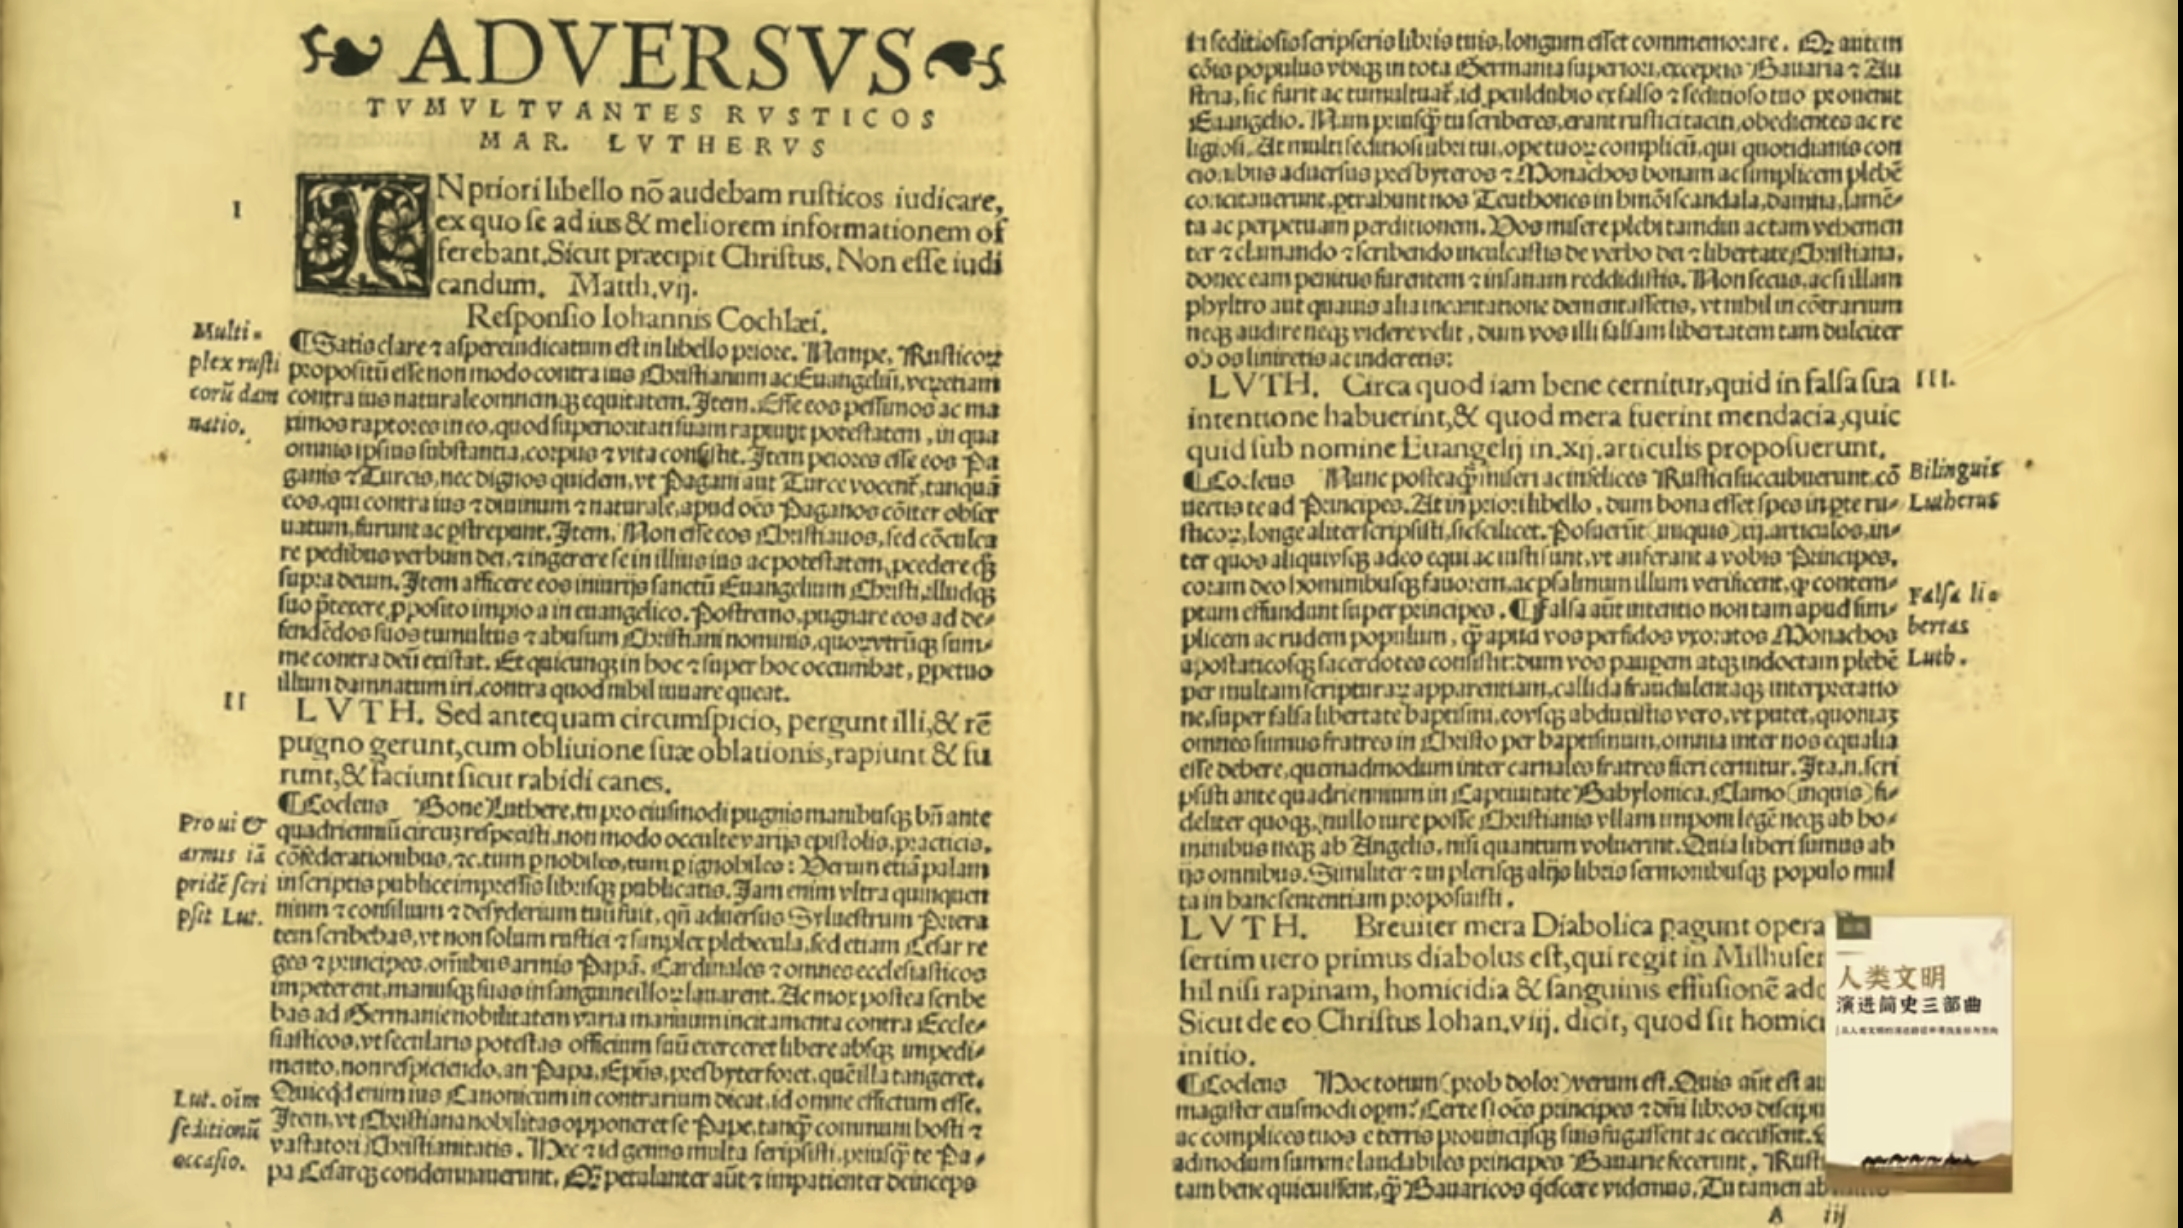 ADVERSVS
TVMVLTVANTES RVSTICOS
MAR. LVTHERVS
I
IN priori libello nō audebam rusticos iudicare,
ex quo se ad ius & meliorem informationem of
ferebant. Sicut præcipit Christus, Non esse iudi
candum. Matth.vij.
Responsio Iohannis Cochlæi.
Multi-
plex rusti
corū dam
natio.
¶Satis clare ⁊ aspere iudicatum est in libello priore. Nempe. Rusticoꝝ
propositū esse non modo contra ius Christianum ac Euangeliū, veꝝ etiam
contra ius naturale omnemqꝫ equitatem. Item. Esse eos pessimos ac ma
ximos raptores in eo, quod superioritati suam rapiunt potestatem, in qua
omnis ipsius substantia, corpus ⁊ vita consistit. Item peiores esse eos Pa
ganis ⁊ Turcis, nec dignos quidem, vt Pagani aut Turce vocent᷑, tanquā
eos, qui contra ius ⁊ diuinum ⁊ naturale, apud oēs Paganos cōiter obser
uatum, furunt ac pstrepunt. Item. Non esse eos Christianos, sed cōculca
re pedibus verbum dei, ⁊ ingerere se in illius ius ac potestatem, pcedere qꝫ
supra deum. Item afficere eos iniurijs sanctū Euangelium Christi, illudqꝫ
suo p̄texere, pposito impio a in euangelico. Postremo, pugnare eos ad de-
fendēdos suos tumultus ⁊ abusum Christiani nominis, quoꝝ vtrūqꝫ sum-
me contra deū existat. Et quicunqꝫ in hoc ⁊ super hoc occumbat, ꝑpetuo
illum damnatum iri, contra quod nihil iuuare queat.
II
LVTH. Sed antequam circumspicio, pergunt illi, & rē
pugno gerunt, cum obliuione suæ oblationis, rapiunt & fu
runt, & faciunt sicut rabidi canes.
Pro ui &
armis iā
pridē scri
psit Lut.
¶Cocleus Bone Luthere, tu pro eiusmodi pugnis manibusqꝫ bn̄ ante
quadrienniū circūrespexisti, non modo occulte varijs epistolis, practicis,
cōfederationibus, ⁊c. tum ꝑ nobiles, tum ꝑ ignobiles: Verum etiā palam
in scriptis publice impressis librisqꝫ publicatis. Iam enim vltra quinquen
nium ⁊ consilium ⁊ desyderium tuū fuit, qn̄ aduersus Syluestrum Priera
tem scribebas, vt non solum rustici ⁊ simplex plebecula, sed etiam Cesar re
ges ⁊ principes, om̄ibus armis Papā, Cardinales ⁊ omnes ecclesiasticos
impeterent, manusqꝫ suas in sanguine illoꝝ lauarent. Ac mox postea scribe
bas ad Germanie nobilitatem varia manuum incitamenta contra Eccle-
siasticos, vt secularis potestas officium suū exerceret libere absqꝫ impedi-
mento, non respiciendo, an Papa, Ep̄us, presbyter foret, quē illa tangeret.
Lut. oīm
seditionū
occasio.
Quicqd enim ius Canonicum in contrarium dicat, id omne effictum esse.
Item, vt Christiana nobilitas opponeret se Pape, tanqꝫ communi hosti ⁊
vastatori Christianitatis. Hec ⁊ id genus multa scripsisti, priusqꝫ te Pa-
pa Cesarqꝫ condemnauerunt. Qꝫ petulanter aūt ⁊ impatienter deinceps
seditiosis scripseris libris tuis, longum esset commemorare. Qꝫ autem
cōis populus vbiqꝫ in tota Germania superiori, exceptis Bauaria ⁊ Au
stria, sic furit ac tumultuat᷑, id pculdubio ex falso ⁊ seditioso tuo prouenit
Euangelio. Nam priusqꝫ tu scriberes, erant rustici taciti, obedientes ac re
ligiosi. At multi seditiosi vbi tui, ope tuoꝝ complicū, qui quotidianis con
cionibus aduersus presbyteros ⁊ Monachos bonam ac simplicem plebē
concitauerunt, ptrahunt nos Teuthones in hmōi scandala, damna, lamē-
ta ac perpetuam perditionem. Vos misere plebi tamdiu ac tam vehemen
ter ⁊ clamando ⁊ scribendo inculcastis de verbo dei ⁊ libertate Christiana,
donec eam penitus furentem ⁊ insanam reddidistis. Non secus, ac si illam
phyltro aut quauis alia incantatione dementassetis, vt nihil in cōtrarium
neqꝫ audire neqꝫ videre velit, dum vos illi falsam libertatem tam dulciter
ob os liniretis ac indereris:
III.
LVTH. Circa quod iam bene cernitur, quid in falsa sua
intentione habuerint, & quod mera fuerint mendacia, quic
quid sub nomine Euangelij in.xij. articulis proposuerunt.
Bilinguis
Lutherus
¶Cocleus Nunc posteaqꝫ miseri ac infelices Rustici succubuerunt, cō
uertis te ad Principes. At in priori libello, dum bona esset spes in pte ru-
sticoꝝ, longe aliter scripsisti, sic scilicet. Posuerūt (inquis) xij. articulos, in-
ter quos aliqui vsqꝫ adeo equi ac iusti sunt, vt auferant a vobis Principes,
coram deo hominibusqꝫ fauorem, ac psalmum illum verificent, qꝫ contem-
Falsa li-
bertas
Luth.
ptum effundant super principes. ¶Falsa aūt intentio non tam apud sim-
plicem ac rudem populum, qꝫ apud vos perfidos vxoratos Monachos
apostaticosqꝫ sacerdotes consistit: dum vos paupem atqꝫ indoctam plebē
per multam scripturaꝝ apparentiam, callida fraudulentaqꝫ interpretatio
ne, super falsa libertate baptismi, eo vsqꝫ abduxistis vero, vt putet, quoniam
omnes sumus fratres in Christo per baptismum, omnia inter nos equalia
esse debere, quemadmodum inter carnales fratres fieri cernitur. Ita.n. scri
psisti ante quadriennium in Captiuitate Babylonica. Clamo (inquis) fi-
deliter quoqꝫ, nullo iure posse Christianis vllam imponi legē neqꝫ ab ho-
minibus neqꝫ ab Angelis, nisi quantum voluerint. Quia liberi sumus ab
ijs omnibus. Similiter ⁊ in plerisqꝫ alijs libris sermonibusqꝫ populo mul
ta in hanc sententiam proposuisti.
LVTH. Breuiter mera Diabolica pagunt opera
sertim uero primus diabolus est, qui regit in Milhusen
hil nisi rapinam, homicidia & sanguinis effusionē
Sicut de eo Christus Iohan.viij. dicit, quod sit
initio.
¶Cocleus Hoc totum (proh dolor) verum est. Quis aūt est
magister eiusmodi opm̄? Certe si oēs principes ⁊ dn̄i libros
ac complices tuos e terris prouincijsqꝫ suis fugassent ac eiecissent.
admodum summe laudabiles principes Bauarie fecerunt,
tam bene quieuissent, qꝫ Bauaricos qescere videmus. Tu tamen
A iij
人类文明
演进简史三部曲